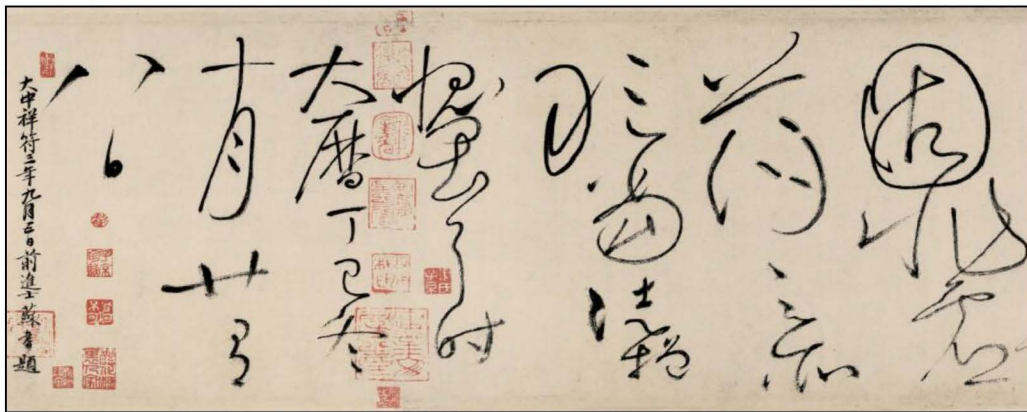 固非虛
蕩之所
敢當徒增
愧畏耳時
大曆丁巳冬
十月廿有
八日
大中祥符三年九月五日前進士蘇耆題